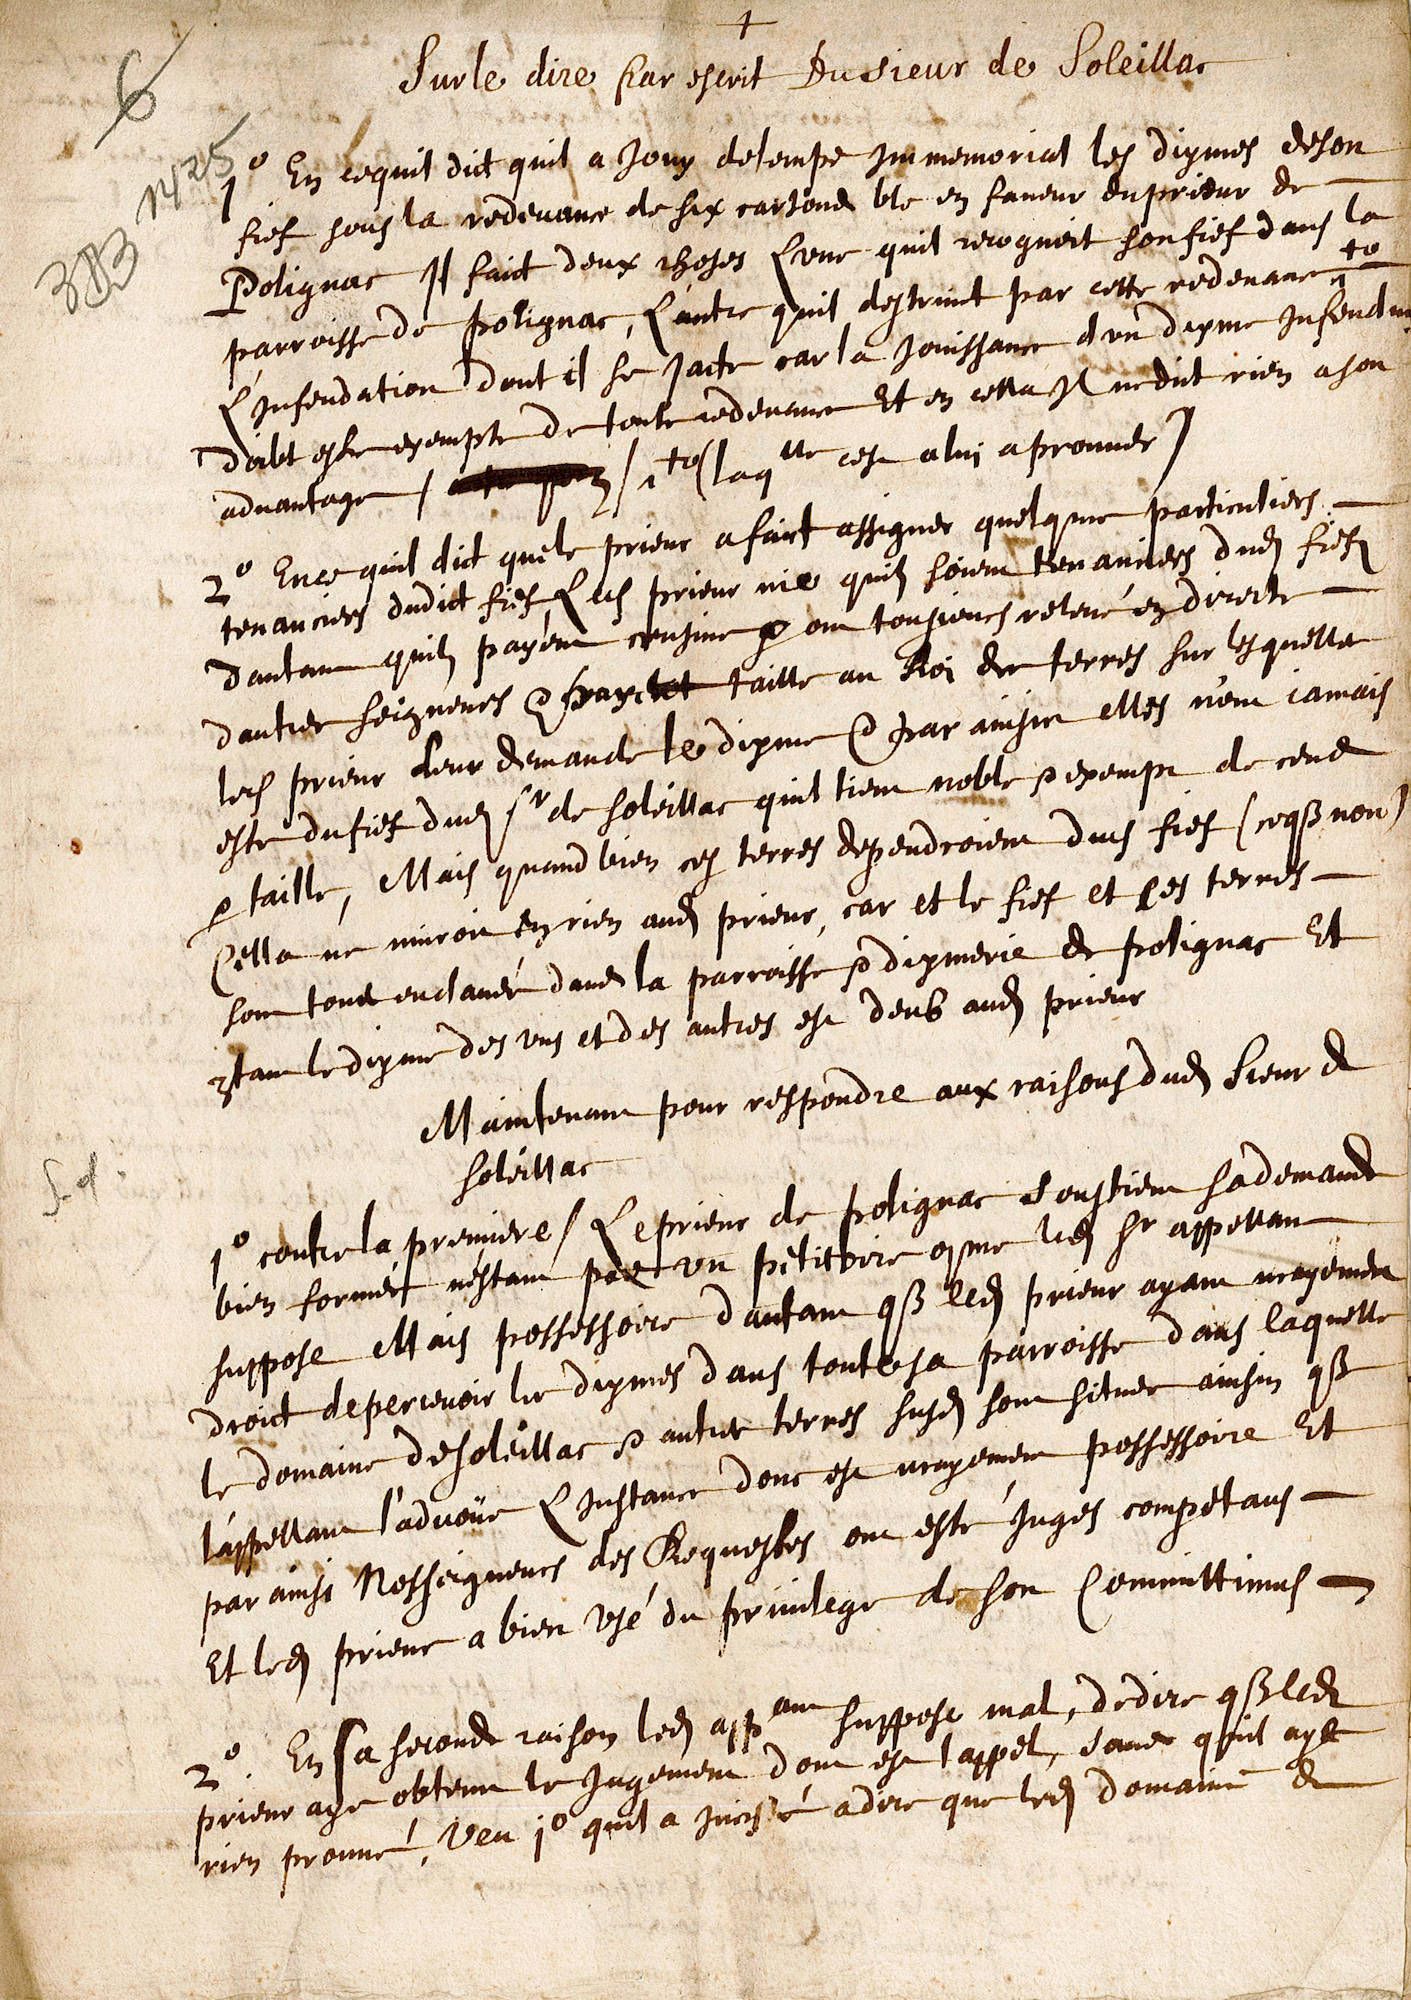 +
Sur le dire par escrit Du sieur de Soleillac
6
1425
3JJ3
1° En ce quil dict quil a Jouy de temps Immemorial les dixmes de son
fief sous la redevance de six cartons ble en faveur du prieur de
Polignac Il faict deux choses L'une quil recognoit son fief dans la
parroisse de polignac, L'autre quil destruict par cette redevance 1to
L'Infeudation dont il se Jacte car la Jouissance d'un dixme Infeudé
doibt estre exempte de toute redevance Et en cella Il ne dict rien a son
advantage / 1to (laqlle cest a luj a prouver)
2° En ce quil dict que le prieur a faict assigner quelques particuliers
tenanciers dudict fief, Led prieur nie quilz soient tenanciers dud fief
dautant quilz payent censive & ont tousjours relevé en directe
dautres seigneurs & taille au Roi des terres sur lesquelles
led prieur leur demande le dixme & par ainsin elles n'ont iamais
esté du fief dud sr de soleillac quil tient noble & exempt de cens
& taille, Mais quand bien ces terres dependroient dud fief (ce q non)
Cella ne nuiroit en rien aud prieur, car et le fief et les terres
sont tous enclavés dans la parroisse & dixmerie de polignac Et
le dixme des uns et des autres est deub aud prieur
Maintenant pour respondre aux raisons dud Sieur de
soleillac
1° contre la premiere / Le prieur de polignac soustient sa demande
bien formée n'estant pas un petitoire come led sr appellant
suppose Mais possessoire dautant q led prieur ayant vrayement
droict de percevoir les dixmes dans toute sa parroisse dans laquelle
le domaine de soleillac & autres terres susd sont situes ainsin q
l'appellant l'advoüe L'Instance donc est vrayement possessoire Et
par ainsi Nosseigneurs des Requestes ont esté Juges competans
Et led prieur a bien Usé du privilege de son Committimus
2°. En sa seconde raison led appant suppose mal, de dire q led
prieur aye obtenu le Jugement dont est l'appel, sans quil aye
rien prouvé, Veu 1° quil a a dire que led domaine de